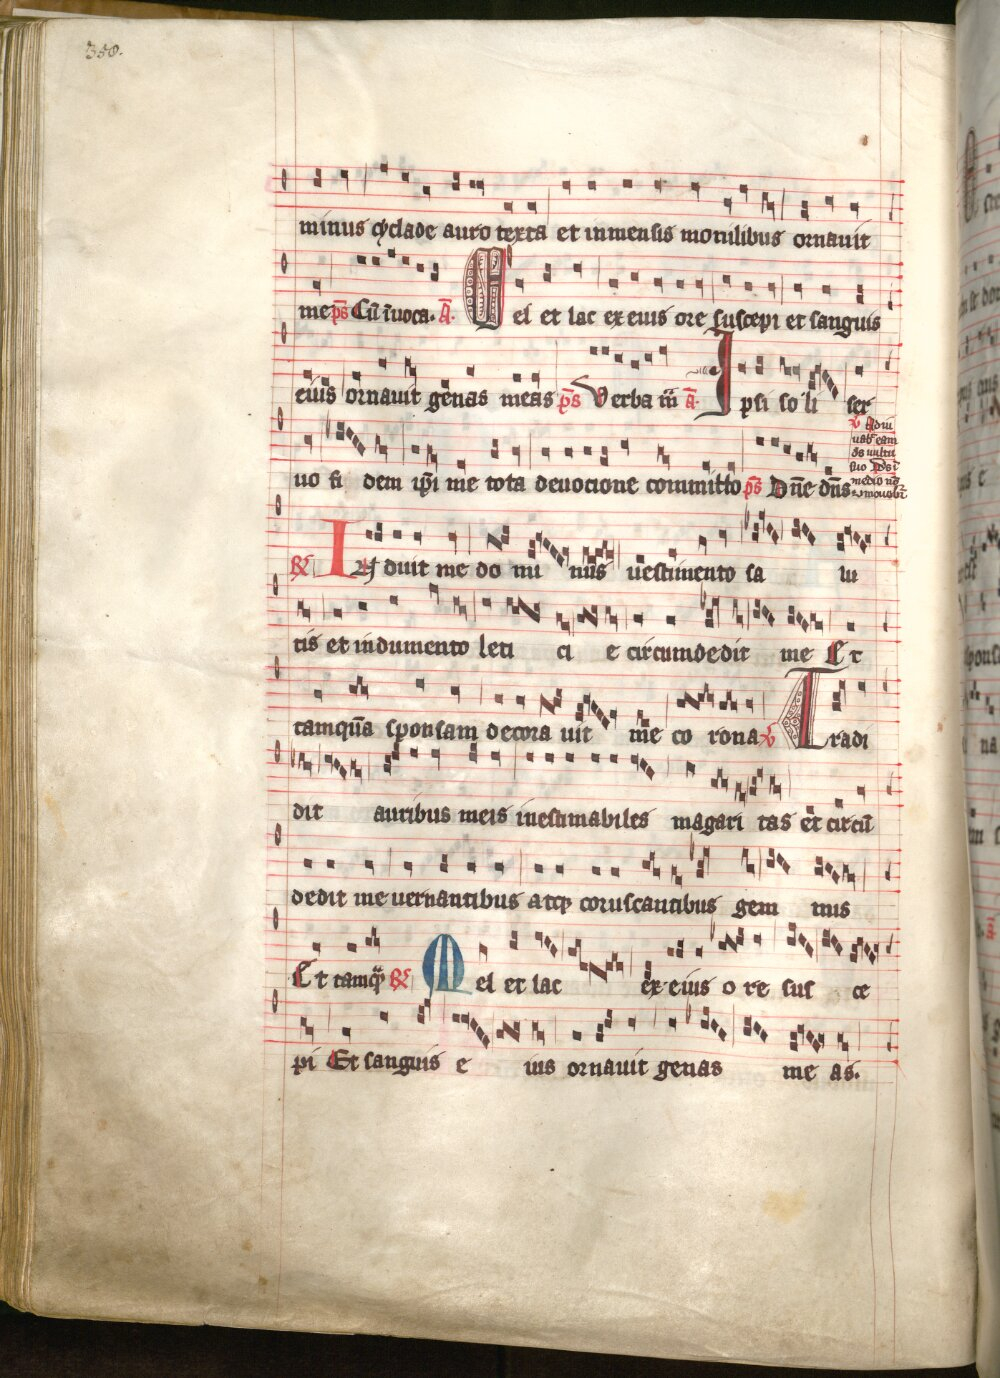 350.
minus cyclade auro texta et inmensis monilibus ornauit
me ps Cū īuoca. A. Mel et lac ex eius ore suscepi et sanguis
eius ornauit genas meas ps Verba m̄ a. Ipsi so li ser
uo fi dem ip̄i me tota deuocione committo ps Dn̄e dn̄s
℣ Adiu
uab eam
ds uultu
suo
medio
mouebi
℟ Induit me do mi nus uestimento sa lu
tis et indumento leti ci e circumdedit me Et
tamqūa sponsam decora uit me co rona ℣ Tradi
dit auribus meis inestimabiles magari tas et circū
dedit me uernantibus atq coruscantibus gem mis
Et tamq ℟ Mel et lac ex eius o re sus ce
pi Et sanguis e ius ornauit genas me as.